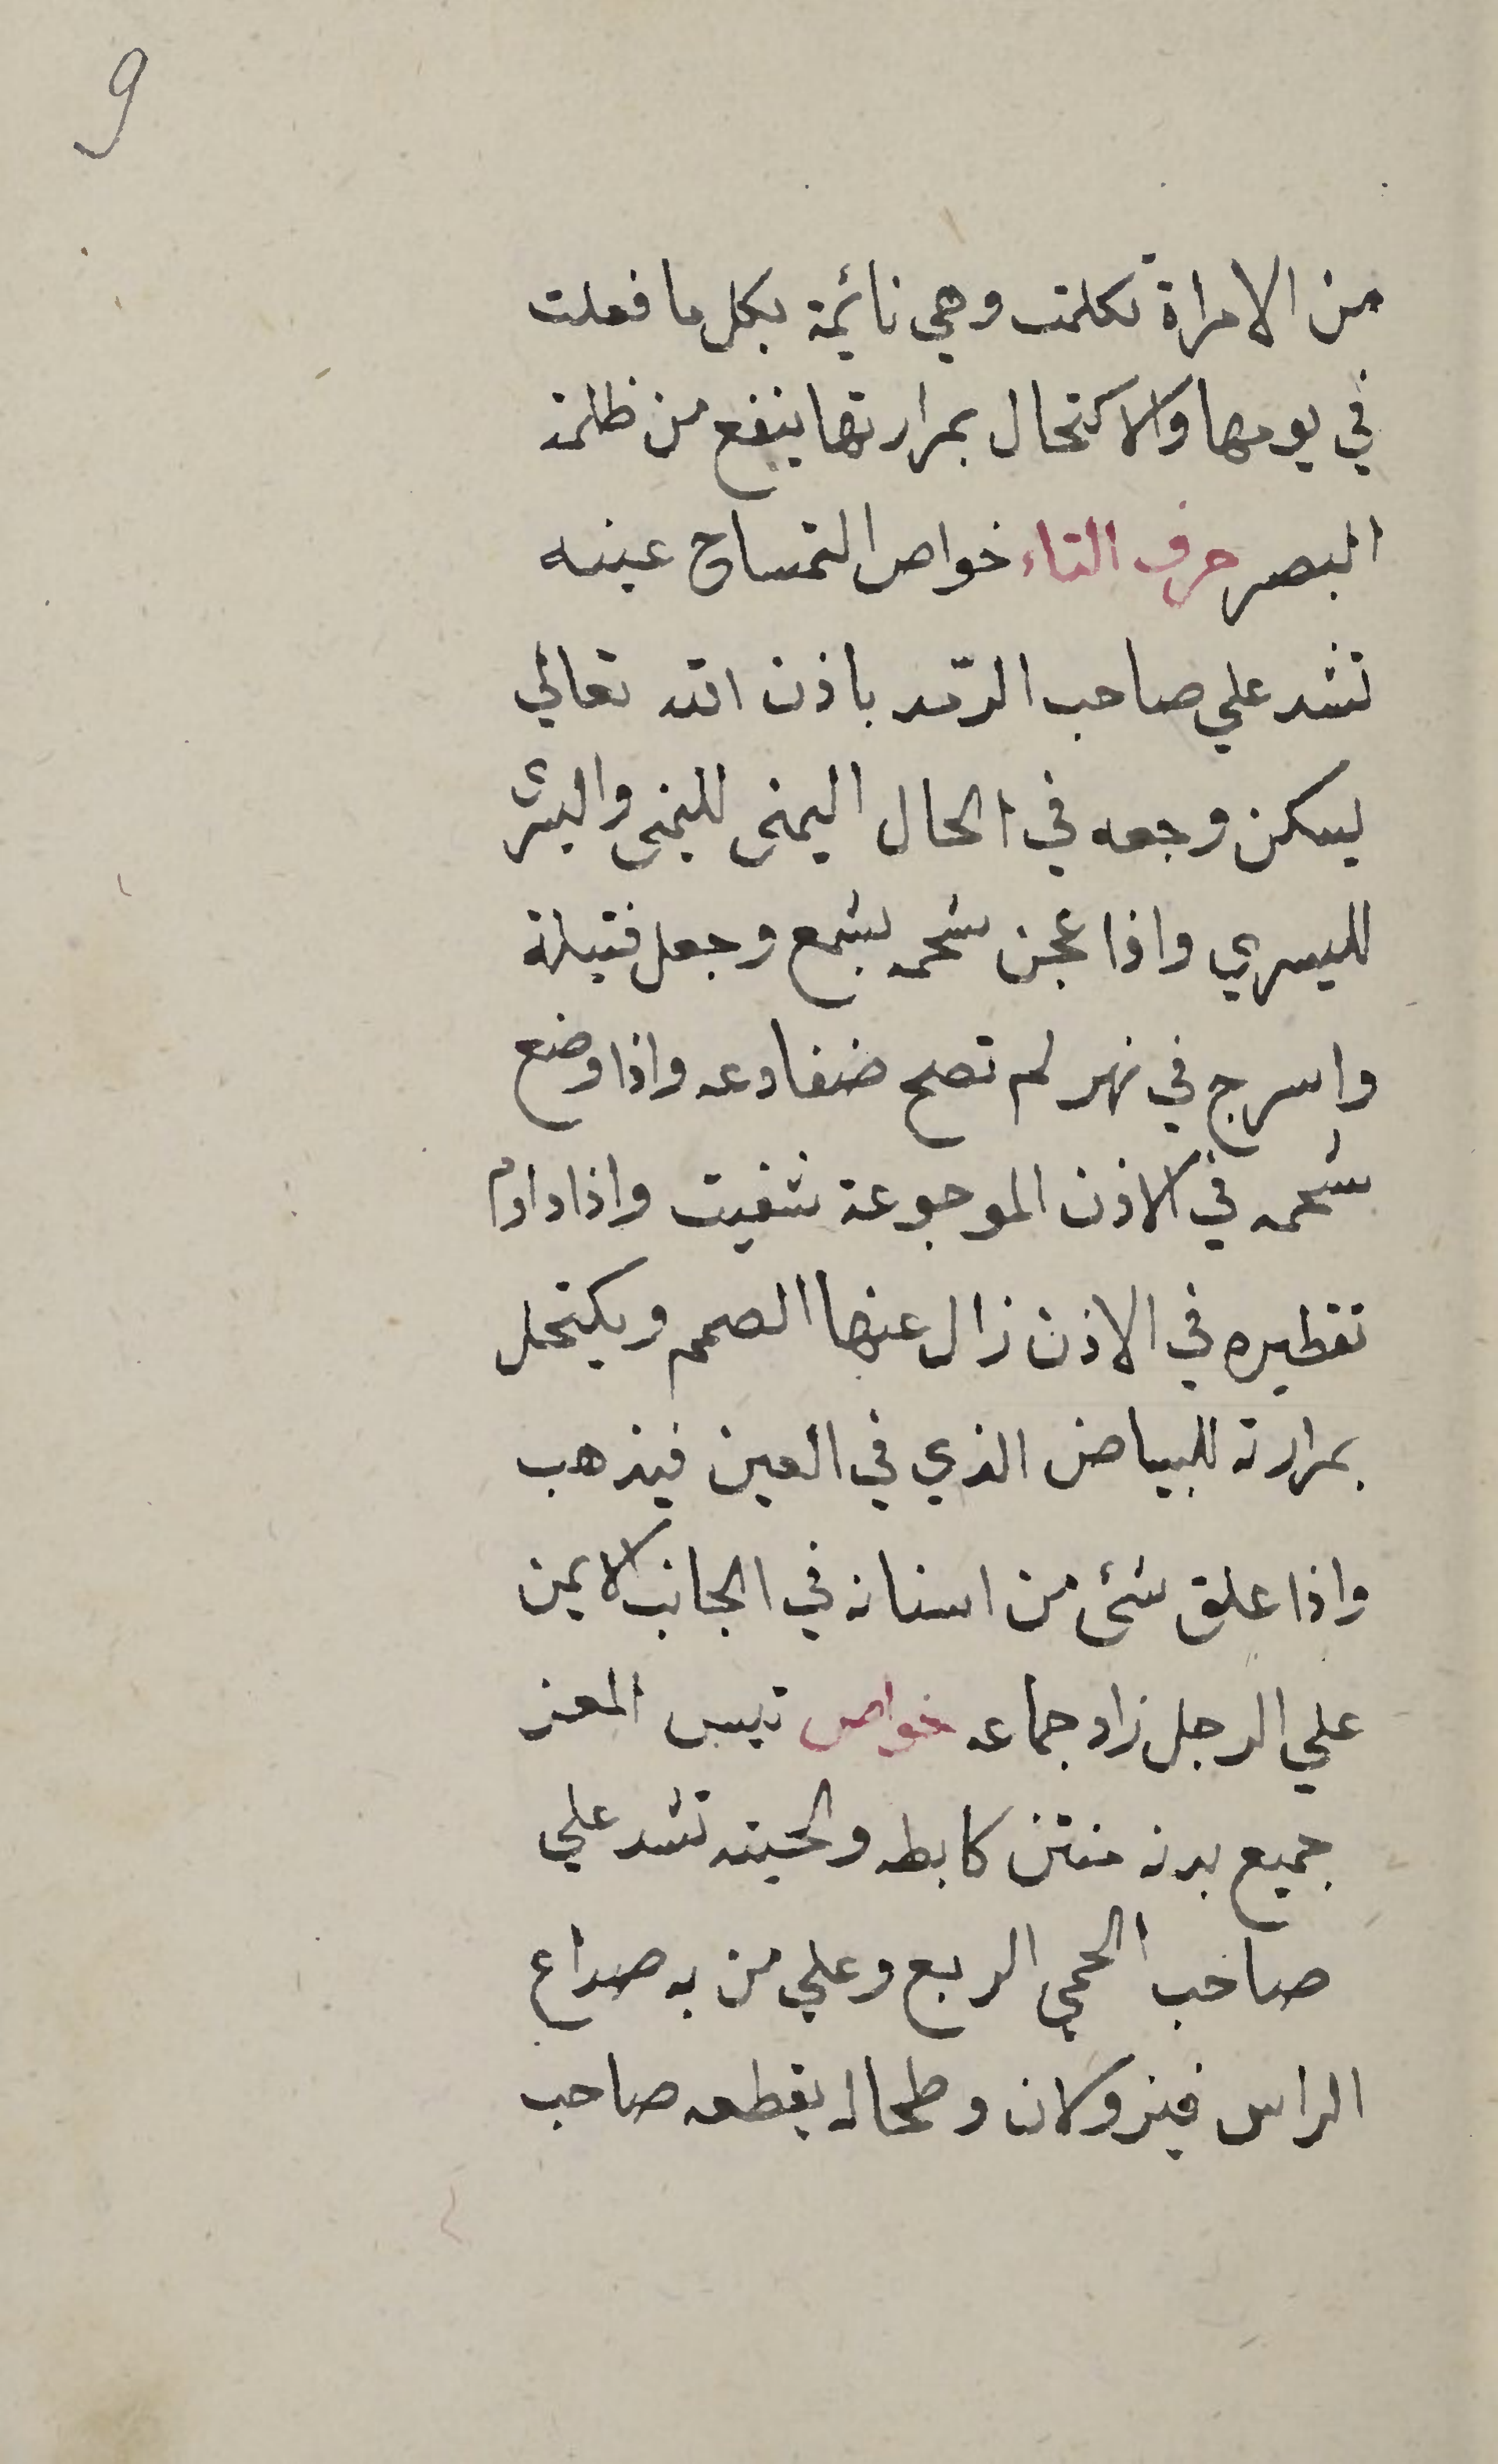 9
من الامراة تكلمت وهي نائمة بكل ما فعلت
في يومها والاكتحال بمرارتها ينفع من ظلمة
البصر حرف التاء خواص التمساح عينه
تشد علي صاحب الرّمد باذن الله تعالي
يسكن وجعه في الحال اليمنى لليمنى واليسرى
لليسري واذا عجن شحمه بشمع وجعل فتيلة
واسرج في نهر لم تصح ضفادعه واذا وضع
شحمه في الاذن الموجوعة شفيت واذا داوم
تقطيره في الاذن زال عنها الصمم ويكتحل
بمرارته للبياض الذي في العين فيذهب
واذا علق شئ من اسنانه في الجانب الايمن
علي الرجل زاد جماعه خواص تيس المعز
جميع بدنه منتن كابطه ولحيته تشد علي
صاحب الحمي الربع وعلي من به صداع
الراس فيزولان وطحاله يقطعه صاحب